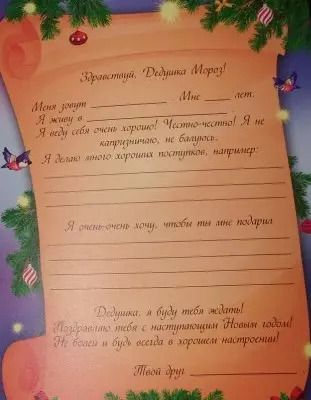 Здравствуй, Дедушка Мороз!
Меня зовут ____________. Мне ____ лет.
Я живу в ____________.
Я веду себя очень хорошо! Честно-честно! Я не
капризничаю, не балуюсь.
Я делаю много хороших поступков, например:
Я очень-очень хочу, чтобы ты мне подарил
Дедушка, я буду тебя ждать!
Поздравляю тебя с наступающим Новым годом!
Не болей и будь всегда в хорошем настроении!
Твой друг ____________